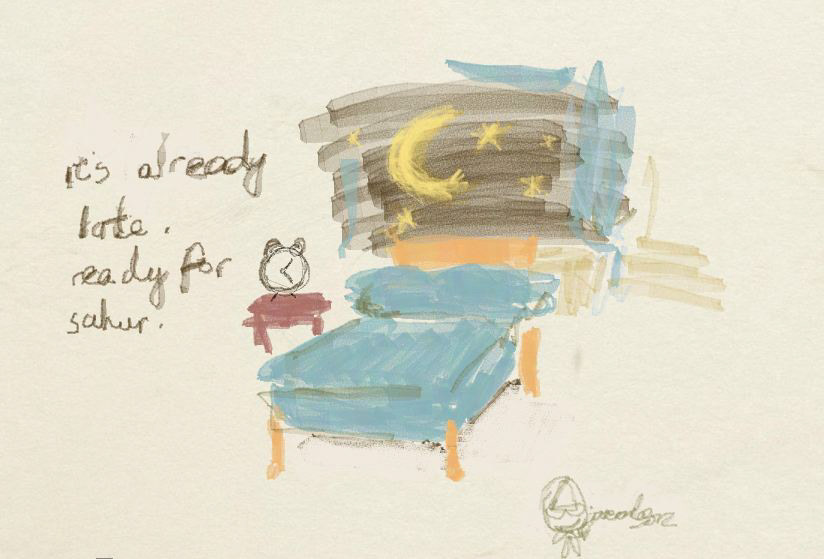 it's already
late.
ready for
sahur.